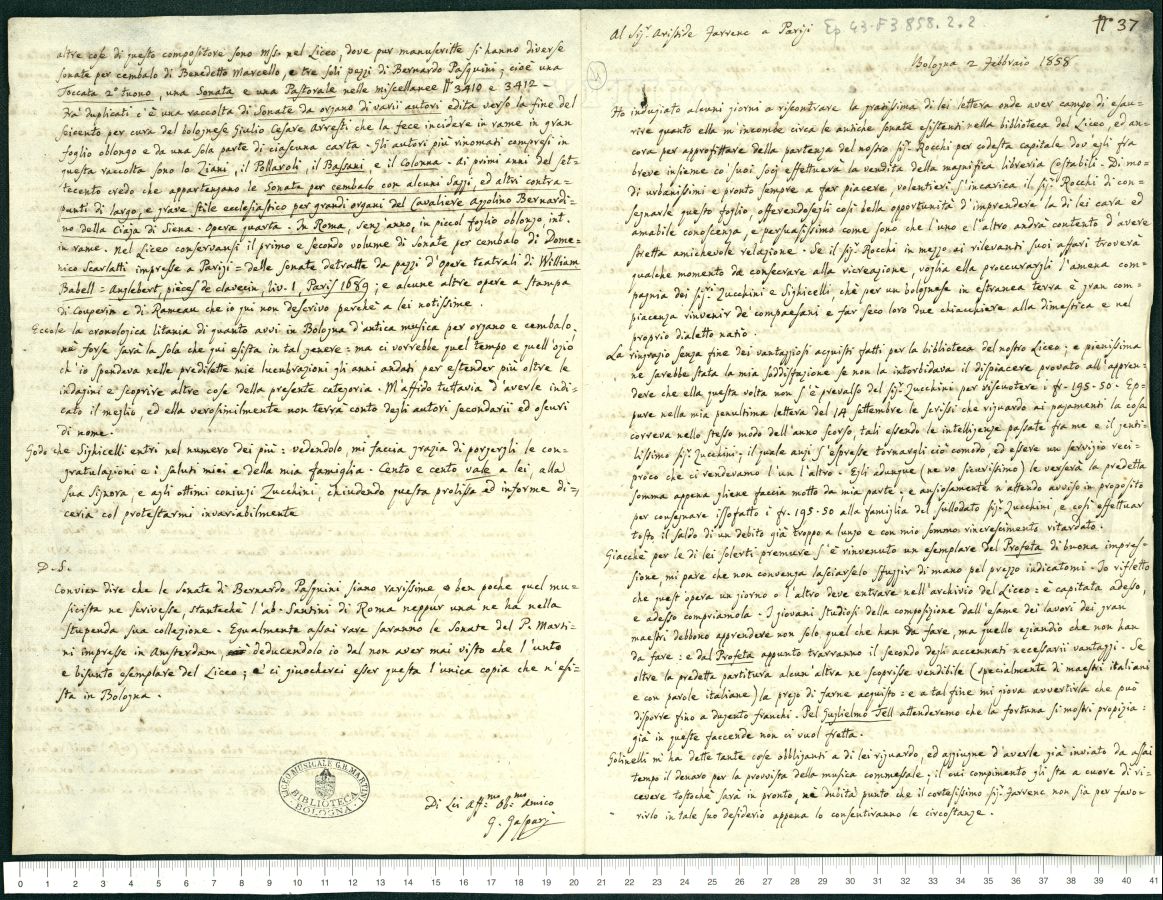 altre cose di questo compositore sono mss. nel Liceo, dove pur manuscritte si hanno diverse
sonate per cembalo di Benedetto Marcello, e tre soli pezzi di Bernardo Pasquini; cioè una
Toccata 2° tuono, una Sonata e una Pastorale nelle miscellanee N 3410 e 3412 -
Fra' duplicati c'è una raccolta di Sonate da organo di varii autori edita verso la fine del
seicento per cura del bolognese Giulio Cesare Arresti che la fece incidere in rame in gran
foglio oblongo e da una sola parte di ciascuna carta. Gli autori più rinomati compresi in
questa raccolta sono lo Ziani, il Pollaroli, il Bassani, e il Colonna. Ai primi anni del set=
tecento credo che appartengano le Sonata per cembalo con alcuni Saggi, ed altri contra=
punti di largo, e grave stile ecclesiastico per grandi organi del Cavaliere Azzolino Bernardi=
no della Ciaja di Siena. Opera quarta. In Roma, senz'anno, in piccol foglio oblongo int.
in rame. Nel Liceo conservansi il primo e secondo volume di Sonate per cembalo di Dome=
nico Scarlatti impresse a Pariji = delle sonate detratte da pezzi d'Opere teatrali di William
Babell = Anglebert, pièces de clavecin, liv. 1, Paris 1689; e alcune altre opere a stampa
di Couperin e di Rameau che io qui non descrivo perchè a lei notissime.
Eccole la cronologica litania di quanto avvi in Bologna d'antica musica per organo e cembalo,
nè forse sarà la sola che qui esista in tal genere: ma ci vorrebbe quel tempo e quell'ozio
ch'io spendava nelle predilette mie lucubrazioni gli anni andati per estender più oltre le
indagini e scoprire altre cose della presente categoria. M'affido tuttavia d'averle indi=
cato il meglio, ed ella verosimilmente non terrà conto degli autori secondarii ed oscuri
di nome.
Godo che Sighicelli entri nel numero dei più: vedendolo, mi faccia grazia di porgergli le con=
gratulazioni e i saluti miei e della mia famiglia. Cento e cento vale a lei, alla
sua Signora, e agli ottimi coniugi Zucchini, chiudendo questa prolissa ed informe di=
ceria col protestarmi invariabilmente
P.S.
Convien dire che le Sonate di Bernardo Pasquini siano rarissime e ben poche quel mu=
sicista ne scrivesse, stantechè l'ab. Santini di Roma neppur una ne ha nella
stupenda sua collezione. Egualmente assai rare saranno le Sonate del P. Marti=
ni impresse in Amsterdam, deducendolo io dal non aver mai visto che l'unto
e bisunto esemplare del Liceo; e ci giuocherei esser questa l'unica copia che n'esi=
sta in Bologna.
LICEO MUSICALE G.B. MARTINI
BIBLIOTECA
BOLOGNA
Di Lei aff.mo Ob.mo amico
G. Gaspari
Al Sig.r Aristide Farrenc a Pariji Ep 43-F3858.2.2.
N° 37
Bologna 2 Febbraio 1858
Ho indugiato alcuni giorni a riscontrare la gradissima di lei lettera onde aver campo di esau=
rire quanto ella m'incombe circa le antiche sonate esistenti nella biblioteca del Liceo, ed an=
cora per approfittare della partenza del nostro sig.r Rocchi per codesta capitale dov'egli fra
breve insieme co' suoi socj effettuerà la vendita della magnifica libreria Costabili. Di mo=
di urbanissimi e pronto sempre a far piacere, volentieri s'incarica il sig.r Rocchi di con=
segnarle questo foglio, offerendosegli così bella opportunità d'imprendere la di lei cara ed
amabile conoscenza, e persuasissimo come sono che l'uno e l'altro andrà contento d'avere
stretta amichevole relazione. Se il sig.r Rocchi in mezzo ai rilevanti suoi affari troverà
qualche momento da consecrare alla ricreazione, voglia ella proccurargli l'amena com=
pagnia dei sig.ri Zucchini e Sighicelli, chè per un bolognese in estranea terra è gran com=
piacenza rinvenir de' compaesani e far seco loro due chiacchiere alla dimestica e nel
proprio dialetto natio.
La ringrazio senza fine dei vantaggiosi acquisti fatti per la biblioteca del nostro Liceo; e pienissima
ne sarebbe stata la mia soddisfazione se non la intorbidava il dispiacere provato all'appren=
dere che ella questa volta non s'è prevalso del sig.r Zucchini per riscuotere i fr. 195-50. Ep=
pure nella mia penultima lettera del 14 settembre le scrissi che riguardo ai pagamenti la cosa
correva nello stesso modo dell'anno scorso, tali essendo le intelligenze passate fra me e il genti=
lissimo sig.r Zucchini; il quale anzi s'espresse tornargli ciò comodo, ed essere un servigio reci=
proco che ci rendevamo l'un l'altro. Egli adunque (ne vo sicurissimo) le verserà la predetta
somma appena gliene faccia motto da mia parte, e ansiosamente n'attendo avviso in proposito
per consegnare issofatto i fr. 195-50 alla famiglia del sullodato sig.r Zucchini, e così effettuar
tosto il saldo di un debito già troppo a lungo e con mio sommo rincrescimento ritardato.
Giacchè per le di lei solerti premure s'è rinvenuto un esemplare del Profeta di buona impres=
sione, mi pare che non convenga lasciarselo sfuggir di mano pel prezzo indicatomi. Io rifletto
che quest'opera un giorno o l'altro deve entrare nell'archivio del Liceo: è capitata adesso,
e adesso compriamola. I giovani studiosi della composizione dall'esame dei lavori dei gran
maestri debbono apprendere non solo quel che han da fare, ma quello eziandio che non han
da fare: e dal Profeta appunto trarranno il secondo degli accennati necessarii vantaggi. Se
oltre la predetta partitura alcun'altra ne scoprisse vendibile (specialmente di maestri italiani
e con parole italiane) la prego di farne acquisto: e a tal fine mi giova avvertirla che può
disporre fino a dugento franchi. Pel Guglielmo Tell attenderemo che la fortuna si mostri propizia:
già in queste faccende non ci vuol fretta.
Golinelli m'ha dette tante cose obbliganti a di lei riguardo, ed aggiugne d'averle già inviato da assai
tempo il denaro per la provvista della musica commessale, il cui compimento gli sta a cuore di ri=
cevere tostochè sarà in pronto, nè dubita punto che il cortesissimo sig.r Farrenc non sia per favo=
rirlo in tale suo desiderio appena lo consentiranno le circostanze.
0 1 2 3 4 5 6 7 8 9 10 11 12 13 14 15 16 17 18 19 20 21 22 23 24 25 26 27 28 29 30 31 32 33 34 35 36 37 38 39 40 41